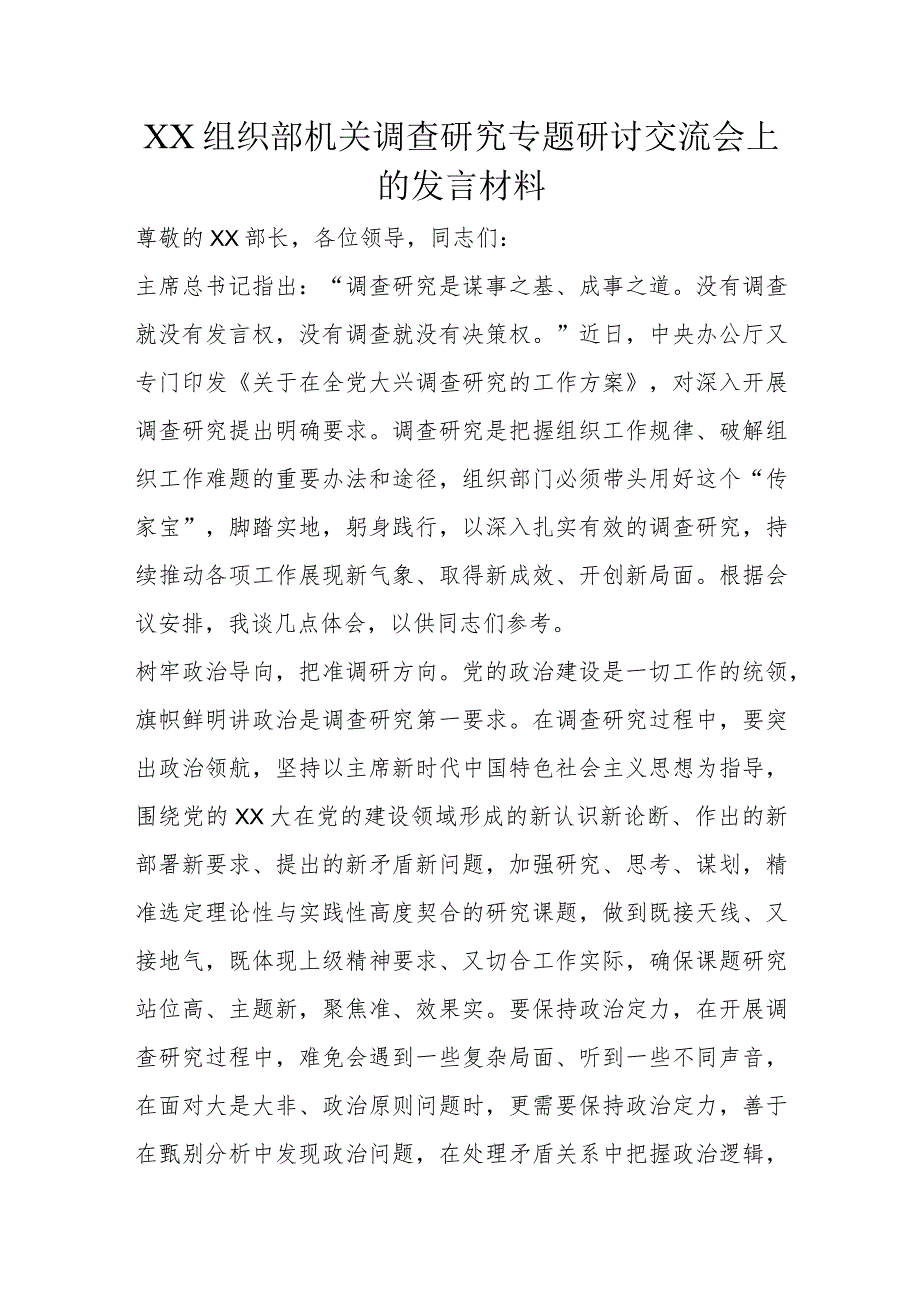 XX组织部机关调查研究专题研讨交流会上
的发言材料
尊敬的XX部长，各位领导，同志们：
主席总书记指出：“调查研究是谋事之基、成事之道。没有调查
就没有发言权，没有调查就没有决策权。”近日，中央办公厅又
专门印发《关于在全党大兴调查研究的工作方案》，对深入开展
调查研究提出明确要求。调查研究是把握组织工作规律、破解组
织工作难题的重要办法和途径，组织部门必须带头用好这个“传
家宝”，脚踏实地，躬身践行，以深入扎实有效的调查研究，持
续推动各项工作展现新气象、取得新成效、开创新局面。根据会
议安排，我谈几点体会，以供同志们参考。
树牢政治导向，把准调研方向。党的政治建设是一切工作的统领，
旗帜鲜明讲政治是调查研究第一要求。在调查研究过程中，要突
出政治领航，坚持以主席新时代中国特色社会主义思想为指导，
围绕党的XX大在党的建设领域形成的新认识新论断、作出的新
部署新要求、提出的新矛盾新问题，加强研究、思考、谋划，精
准选定理论性与实践性高度契合的研究课题，做到既接天线、又
接地气，既体现上级精神要求、又切合工作实际，确保课题研究
站位高、主题新，聚焦准、效果实。要保持政治定力，在开展调
查研究过程中，难免会遇到一些复杂局面、听到一些不同声音，
在面对大是大非、政治原则问题时，更需要保持政治定力，善于
在甄别分析中发现政治问题，在处理矛盾关系中把握政治逻辑，